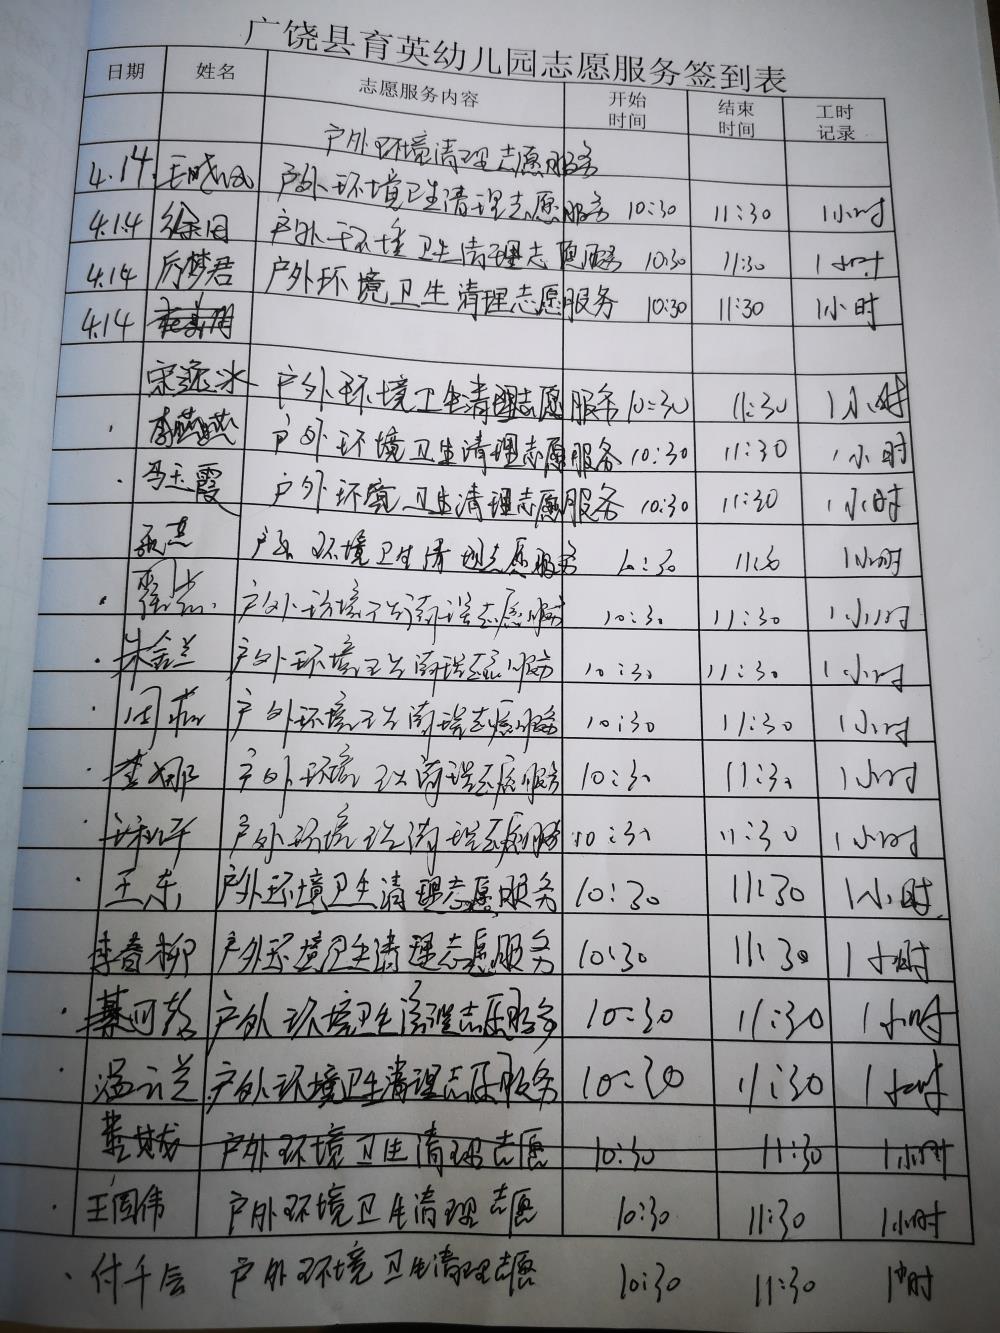 广饶县育英幼儿园志愿服务签到表
日期 姓名 志愿服务内容 开始时间 结束时间 工时记录
户外环境清理志愿服务
4.14. 户外环境卫生清理志愿服务 10:30 11:30 1小时
4.14 户外环境卫生清理志愿服务 10:30 11:30 1小时
4.14 房梦君 户外环境卫生清理志愿服务 10:30 11:30 1小时
4.14
宋逸冰 户外环境卫生清理志愿服务 10:30 11:30 1小时
李燕燕 户外环境卫生清理志愿服务 10:30 11:30 1小时
冯玉霞 户外环境卫生清理志愿服务 10:30 11:30 1小时
户外环境卫生清理志愿服务 10:30 1小时
户外环境卫生清理志愿服务 10:30 11:30 1小时
朱金兰 户外环境卫生清理志愿服务 10:30 11:30 1小时
户外环境卫生清理志愿服务 10:30 11:30 1小时
李娜 户外环境卫生清理志愿服务 10:30 11:30 1小时
户外环境卫生清理志愿服务 10:30 11:30 1小时
王东 户外环境卫生清理志愿服务 10:30 11:30 1小时
李春柳 户外环境卫生清理志愿服务 10:30 11:30 1小时
户外环境卫生清理志愿服务 10:30 11:30 1小时
温云兰 户外环境卫生清理志愿服务 10:30 11:30 1小时
户外环境卫生清理志愿 10:30 11:30 1小时
王国伟 户外环境卫生清理志愿 10:30 11:30 1小时
付千会 户外环境卫生清理志愿 10:30 11:30 1小时